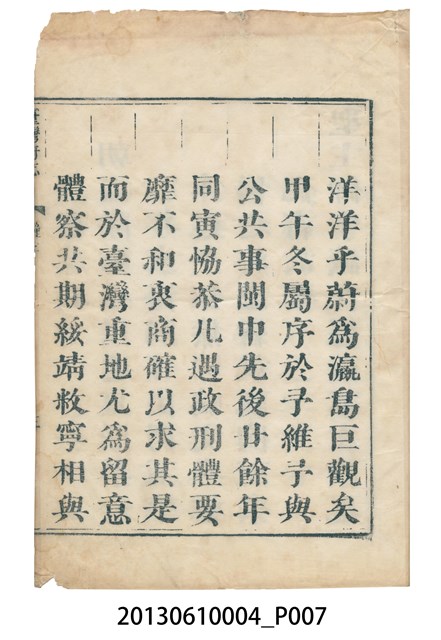 洋洋乎蔚為瀛島巨觀矣
甲午冬屬序於予維予與
公共事閩中先後廿餘年
同寅恊恭凡遇政刑體要
靡不和衷商確以求其是
而於臺灣重地尤為留意
體察共期綏靖敉寧相與
20130610004_P007